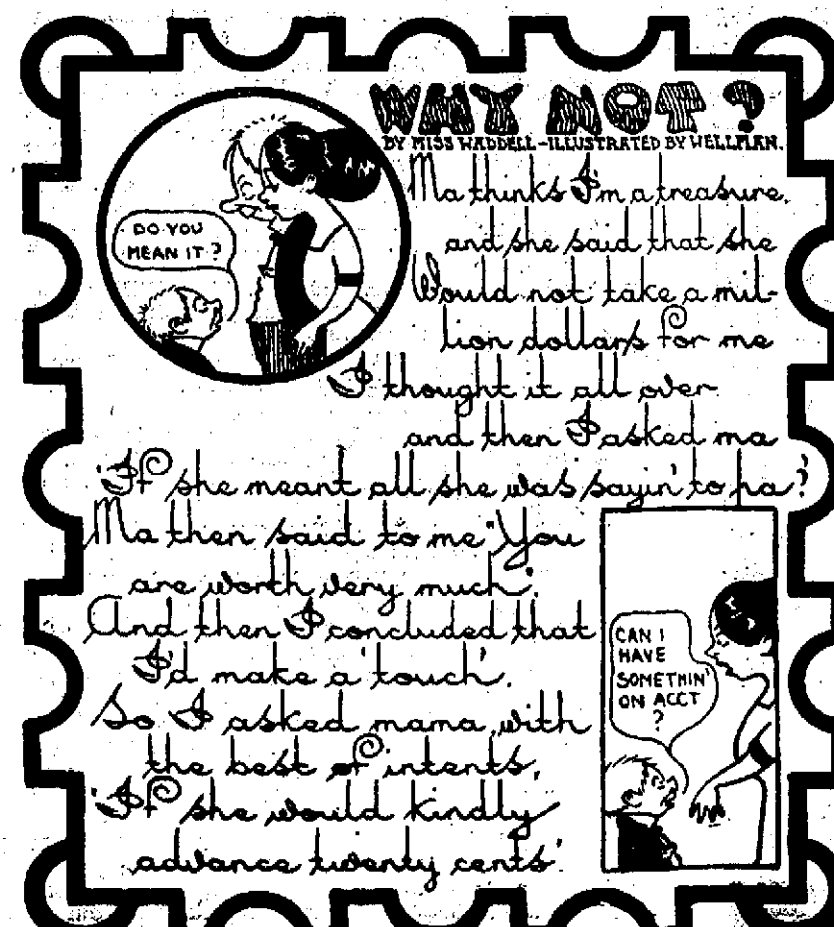 WHY NOT?
BY MISS WADDELL-ILLUSTRATED BY WELLMAN.
DO YOU
MEAN IT?
Ma thinks I'm a treasure,
and she said that she
Would not take a mil-
lion dollars for me
I thought it all over
and then I asked ma
'If she meant all she was sayin' to pa?'
Ma then said to me "You
are worth very much".
And then I concluded that
I'd make a 'touch'.
So I asked mama, with
the best of intents,
'If she would kindly
advance twenty cents'.
CAN I
HAVE
SOMETHIN'
ON ACCT
?